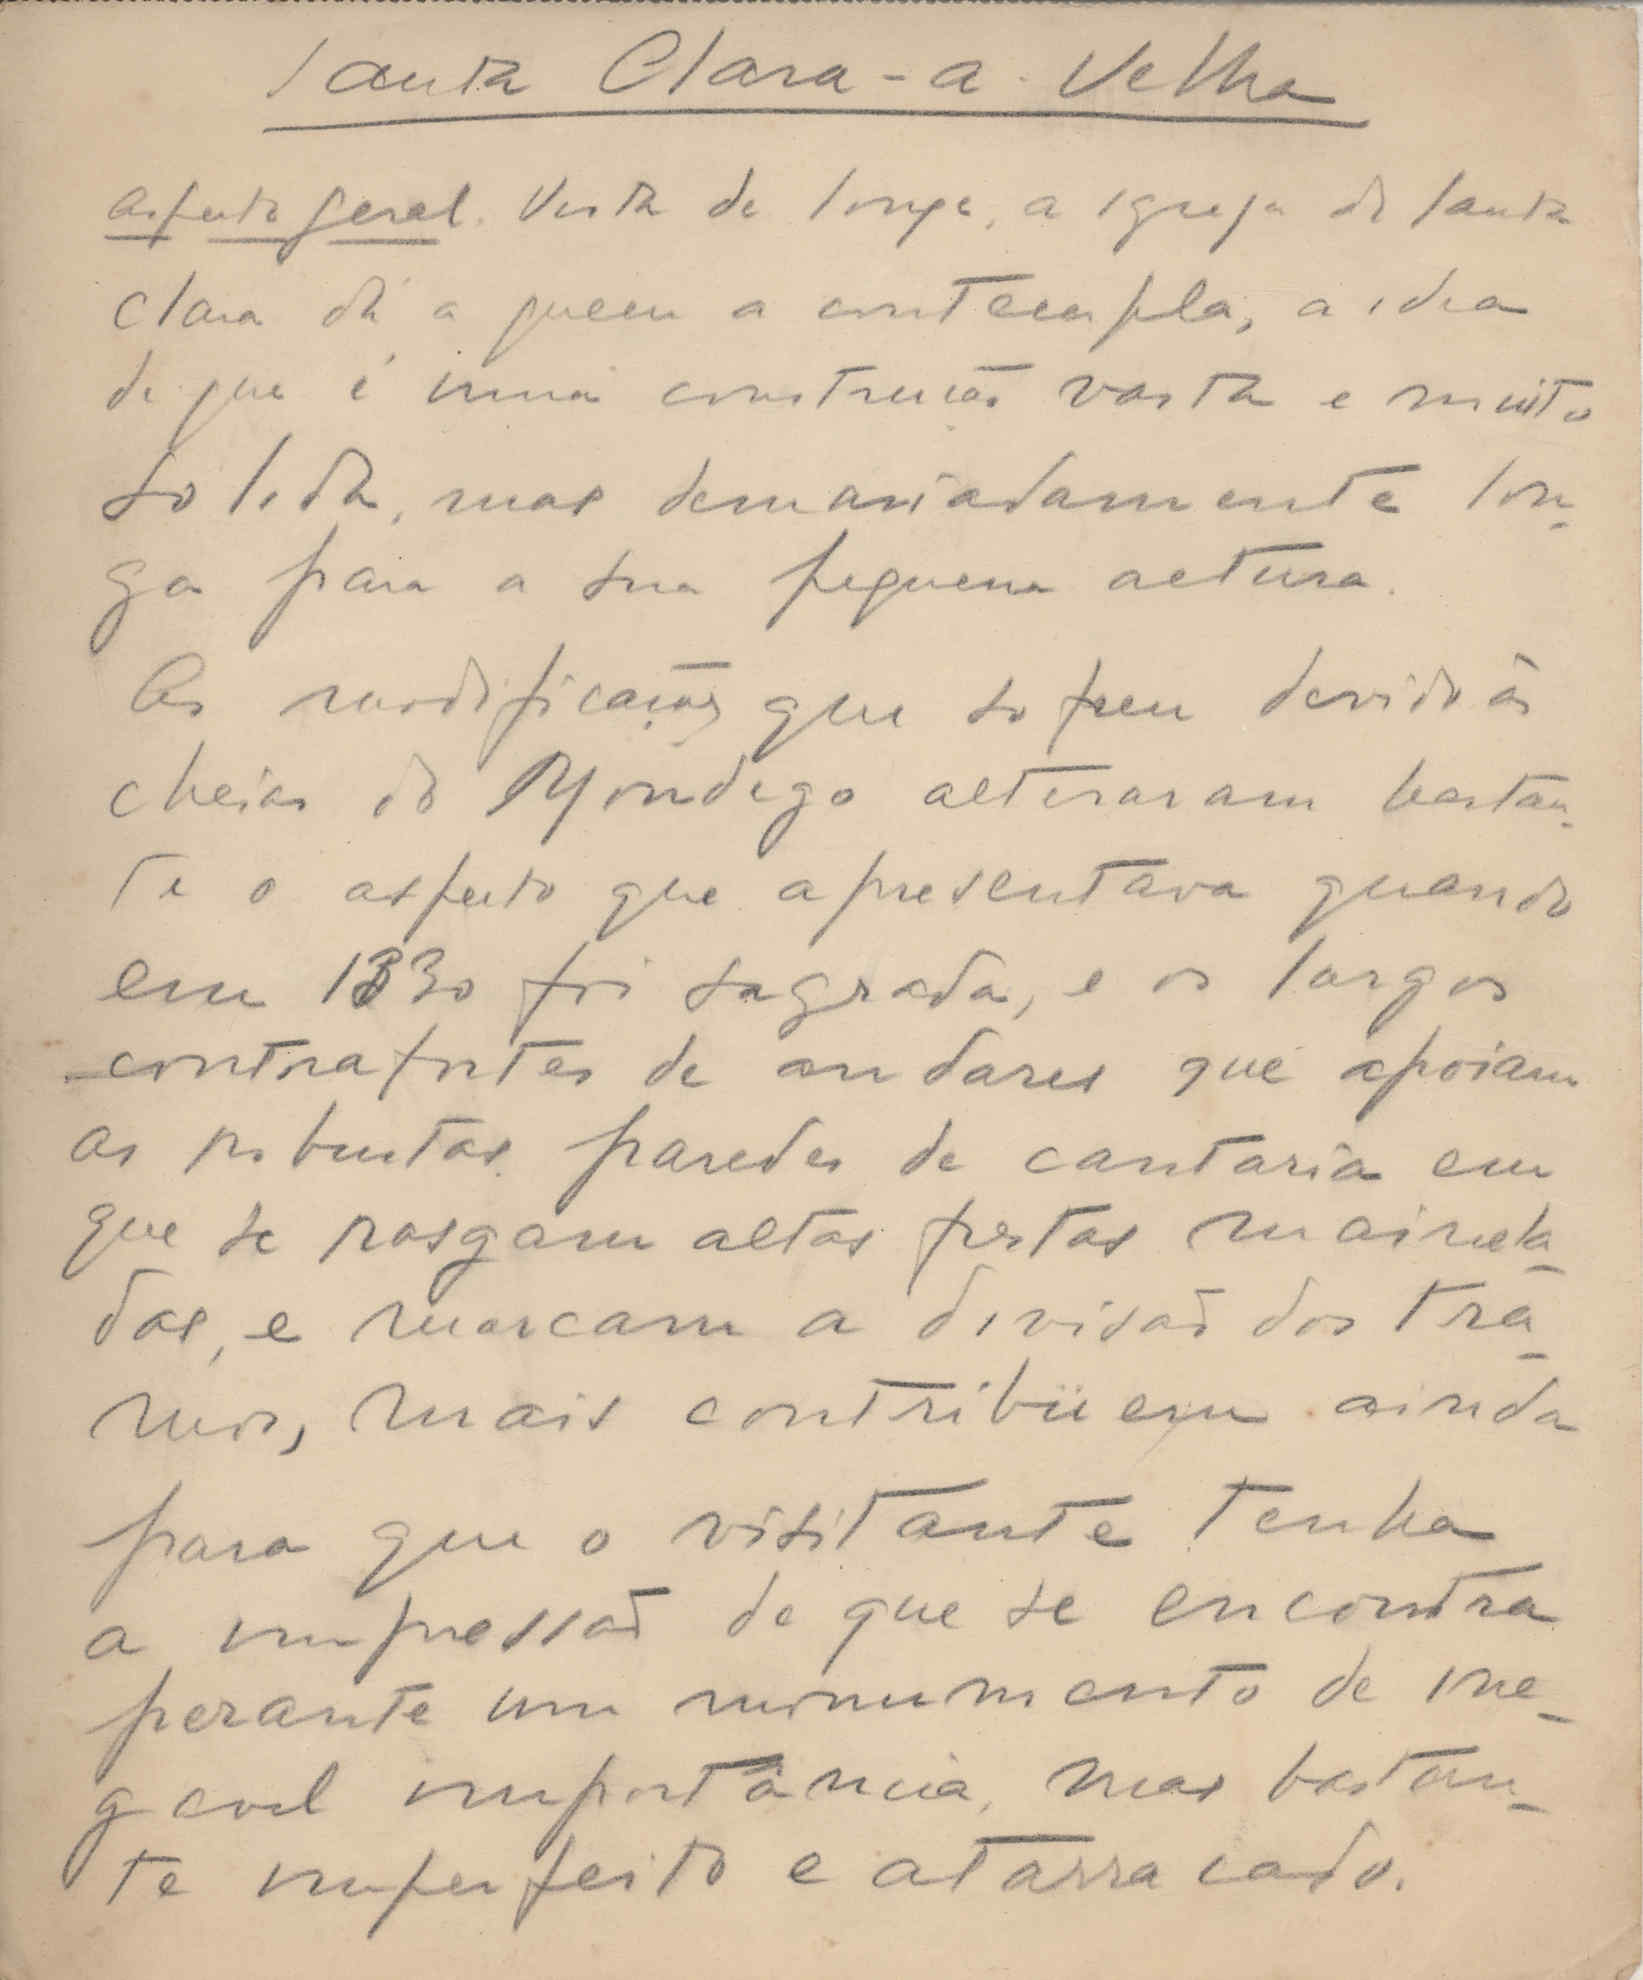 Santa Clara-a-Velha
Aspecto geral. Vista de longe, a igreja de Santa
Clara dá a quem a contempla, a idea
de que é uma construcão vasta e muito
solida, mas demasiadamente lon-
ga para a sua pequena altura.
As modificações que sofreu devido às
cheias do Mondego alteraram bastan-
te o aspecto que apresentava quando
em 1330 foi sagrada, e os largos
contrafortes de andares que apoiam
as robustas paredes de cantaria em
que se rasgam altas frestas mainela-
das, e marcam a divisão dos tra-
mos, mais contribüem ainda
para que o visitante tenha
a impressão de que se encontra
perante um monumento de ine-
gavel importância, mas bastan-
te imperfeito e atarracado.